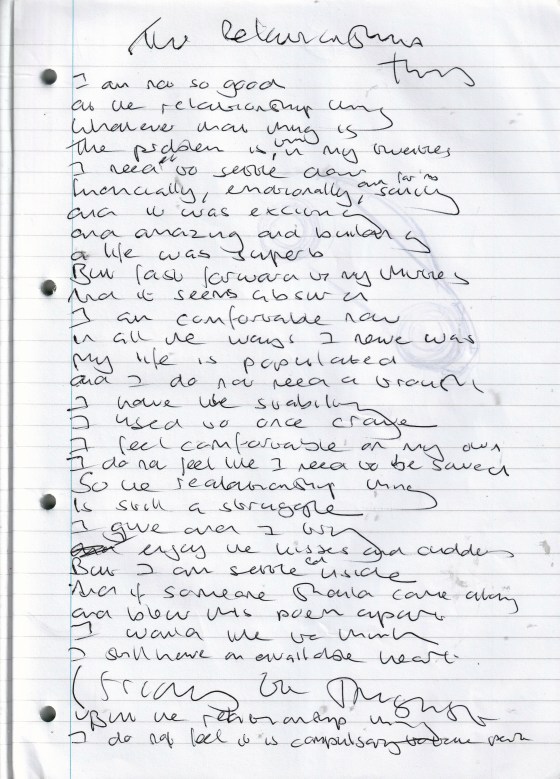 The Relationships
Thing
I am not so good
at the relationship thing
Whatever that thing is
The problem is, in my twenties
I need to settle down
financially, emotionally, saving
and it was exciting
and amazing and building
a life was superb
But fast forward to my thirties
And it seems absurd
I am comfortable now
in all the ways I never was
My life is populated
and I do not need a
I have the stability
I used to once crave
I feel comfortable on my own
I do not feel like I need to be saved
So the realationship thing
Is such a struggle
I give and I try
enjoy the kisses and cuddles
But I am settled inside
And if someone should come along
and blow this poem apart
I would like to think
I still have an available heart.
But the relationship thing
I do not feel it is compulsary